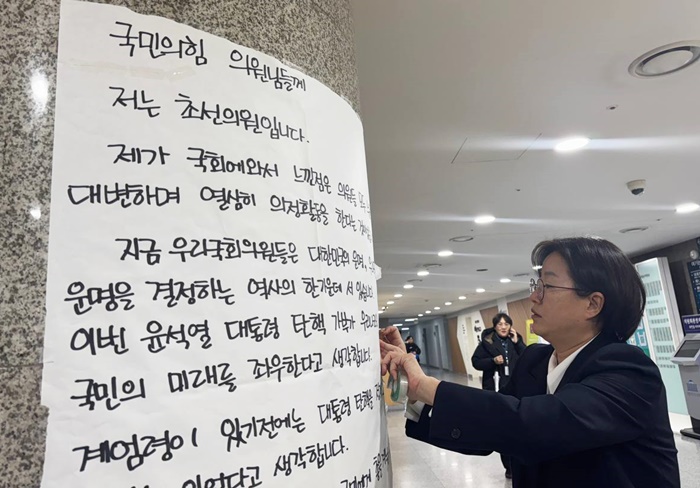 국민의힘 의원님들께
저는 초선의원입니다.
제가 국회에와서 느낀점은 의원들
대변하며 열심히 의정활동을 한다는
지금 우리국회의원들은 대한민국의 운명,
운명을 결정하는 역사의 한가운데 서 있습니다
이번 윤석열 대통령 탄핵 가부가 우리
국민의 미래를 좌우한다고 생각합니다.
계엄령이 있기전에는 대통령 탄핵을
생각합니다.